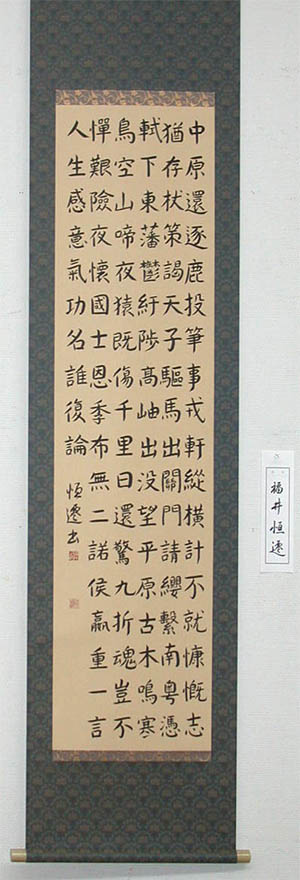 中原還逐鹿投筆事戎軒縱橫計不就慷慨志
猶存杖策謁天子驅馬出關門請纓繫南粤憑
軾下東藩鬱紆陟高岫出没望平原古木鳴寒
鳥空山啼夜猿既傷千里目還驚九折魂豈不
憚艱險夜懷國士恩季布無二諾侯嬴重一言
人生感意氣功名誰復論 恒遼書
福井恒遼